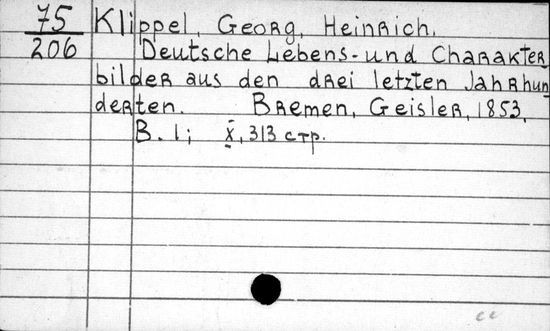 75
206
Klippel, Georg, Heinrich.
Deutsche Lebens-und Charakter
bilder aus den drei letzten Jahrhun
derten. Bremen, Geisler, 1853.
B. 1; X, 313 стр.